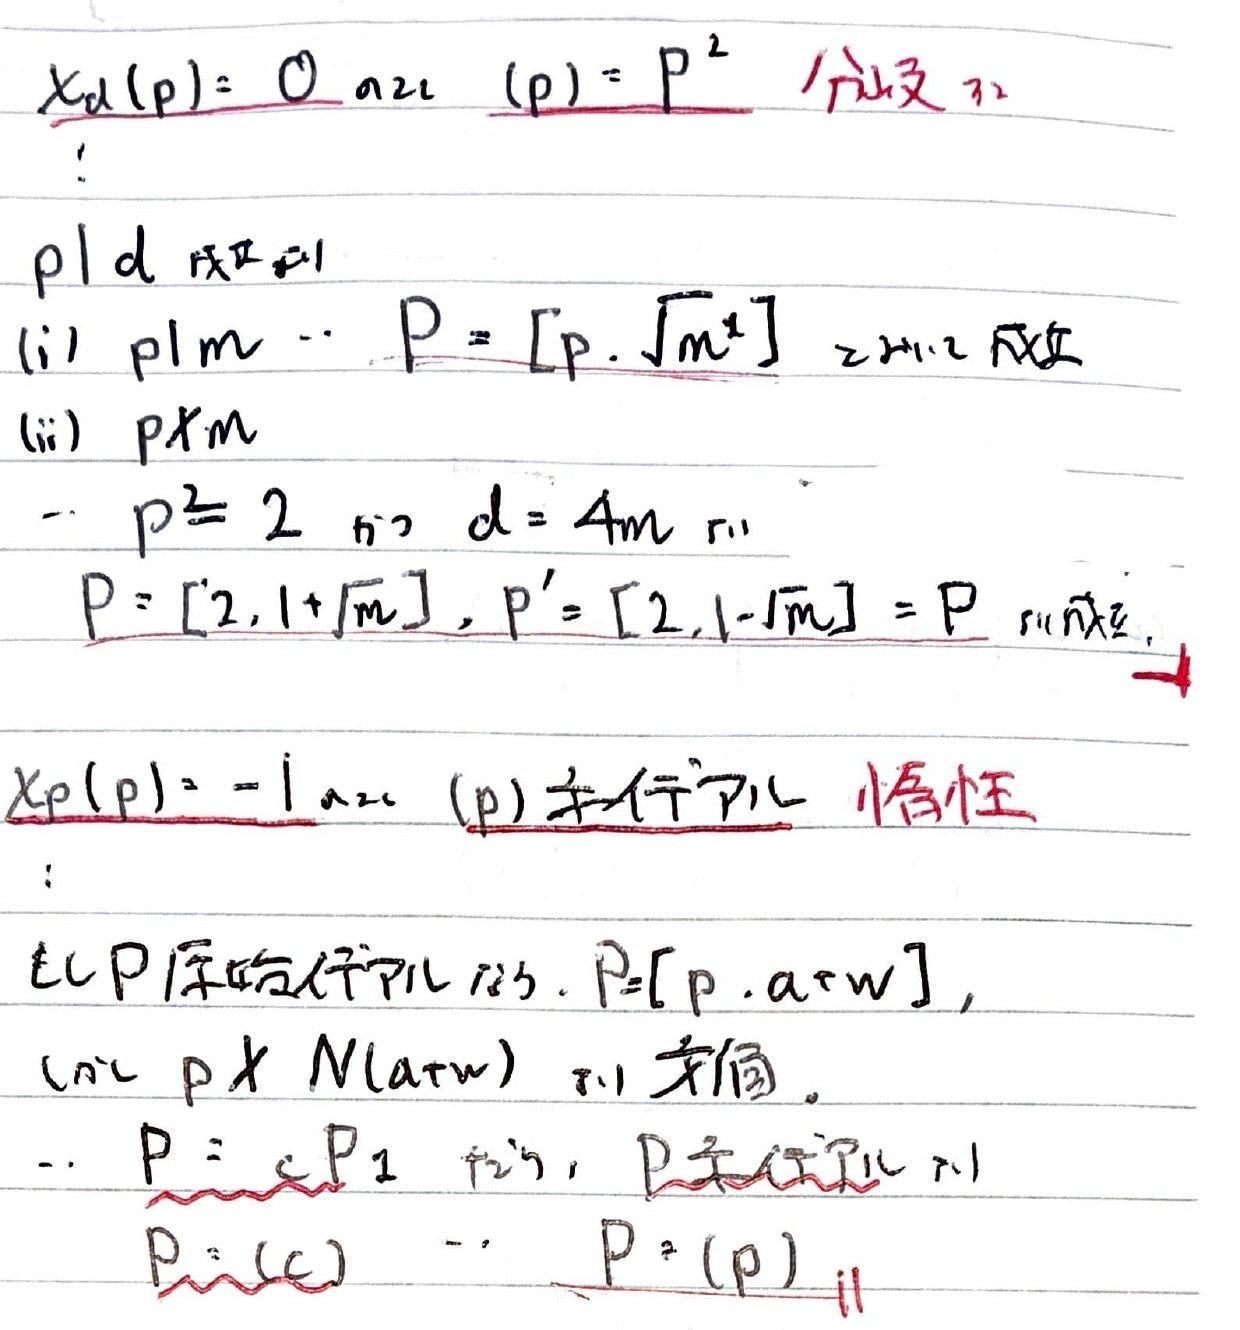 χd(p) = 0 のとき (p) = P² 分岐
⋮
p | d 成立より
(i) p | m … P = [p, √m] において 成立
(ii) p ∤ m
… p = 2 かつ d = 4m より
P = [2, 1+√m], P' = [2, 1-√m] = P より成立.
χp(p) = -1 のとき (p) 素イデアル 惰性
⋮
もし P 原始イデアル なら. P = [p, a+w],
しかし p ∤ N(a+w) より 矛盾。
… P = cP1 だから, P 素イデアル より
P = (c) … P = (p)